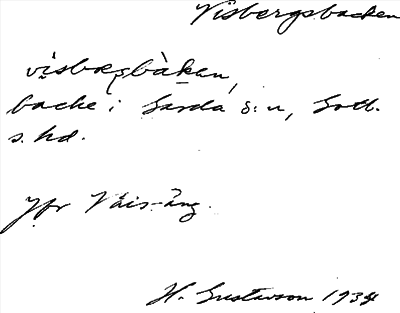 Visbergsbacken
visbærsbàkan,
backe i Garda s:n, Gotl.
s. hd.
Jfr Väis-äng.
H. Gustavson 1934